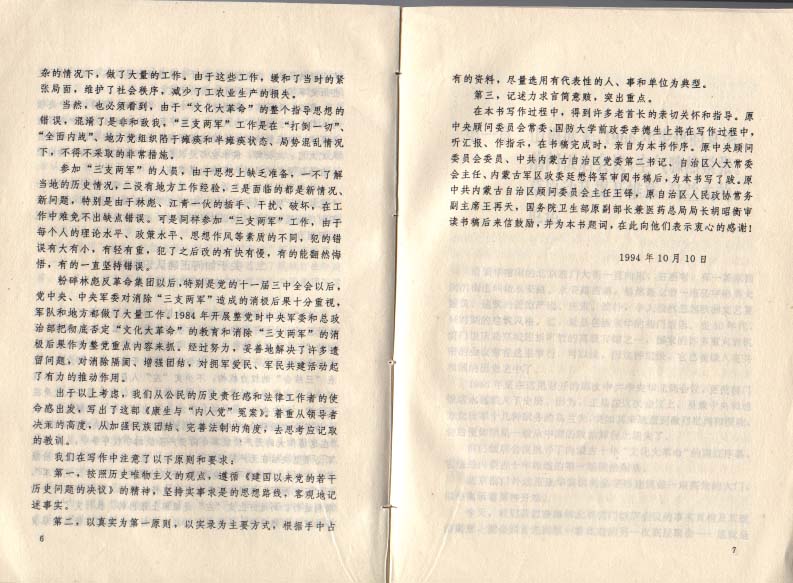 杂的情况下，做了大量的工作。由于这些工作，缓和了当时的紧
张局面，维护了社会秩序，减少了工农业生产的损失。
当然，也必须看到，由于“文化大革命”的整个指导思想的
错误，混淆了是非和敌我，“三支两军”工作是在“打倒一切”、
“全面内战”、地方党组织陷于瘫痪和半瘫痪状态、局势混乱情况
下，不得不采取的非常措施。
参加“三支两军”的人员，由于思想上缺乏准备，一不了解
当地的历史情况，二没有地方工作经验，三是面临的都是新情况、
新问题，特别是由于林彪、江青一伙的插手、干扰、破坏，在工
作中难免不出缺点错误。可是同样参加“三支两军”工作，由于
每个人的理论水平、政策水平、思想作风等素质的不同，犯的错
误有大有小，有轻有重，犯了之后改的有快有慢，有的能翻然悔
悟，有的一直坚持错误。
粉碎林彪反革命集团以后，特别是党的十一届三中全会以后，
党中央、中央军委对消除“三支两军”造成的消极后果十分重视，
军队和地方都做了大量工作。1984年开展整党时中央军委和总政
治部把彻底否定“文化大革命”的教育和消除“三支两军”的消
极后果作为整党重点内容来抓。经过努力，妥善地解决了许多遗
留问题，对消除隔阂、增强团结，对拥军爱民、军民共建活动起
了有力的推动作用。
出于以上考虑，我们从公民的历史责任感和法律工作者的使
命感出发，写出了这部《康生与“内人党”冤案》。着重从领导者
决策的高度，从加强民族团结、完善法制的角度，去思考应记取
的教训。
我们在写作中注意了以下原则和要求：
第一，按照历史唯物主义的观点，遵循《建国以来党的若干
历史问题的决议》的精神，坚持实事求是的思想路线，客观地记
述事实。
第二，以真实为第一原则，以实录为主要方式，根据手中占
6
有的资料，尽量选用有代表性的人、事和单位为典型。
第三，记述力求言简意赅，突出重点。
在本书写作过程中，得到许多老首长的亲切关怀和指导。原
中央顾问委员会常委、国防大学前政委李德生上将在写作过程中，
听汇报、作指示，在书稿完成时，亲自为本书作序。原中央顾问
委员会委员、中共内蒙古自治区党委第二书记、自治区人大常委
会主任、内蒙古军区政委廷懋将军审阅书稿后，为本书写了跋。原
中共内蒙古自治区顾问委员会主任王铎，原自治区人民政协常务
副主席王再天，国务院卫生部原副部长兼医药总局局长胡昭衡审
读书稿后来信鼓励，并为本书题词，在此向他们表示衷心的感谢！
1994年10月10日
7